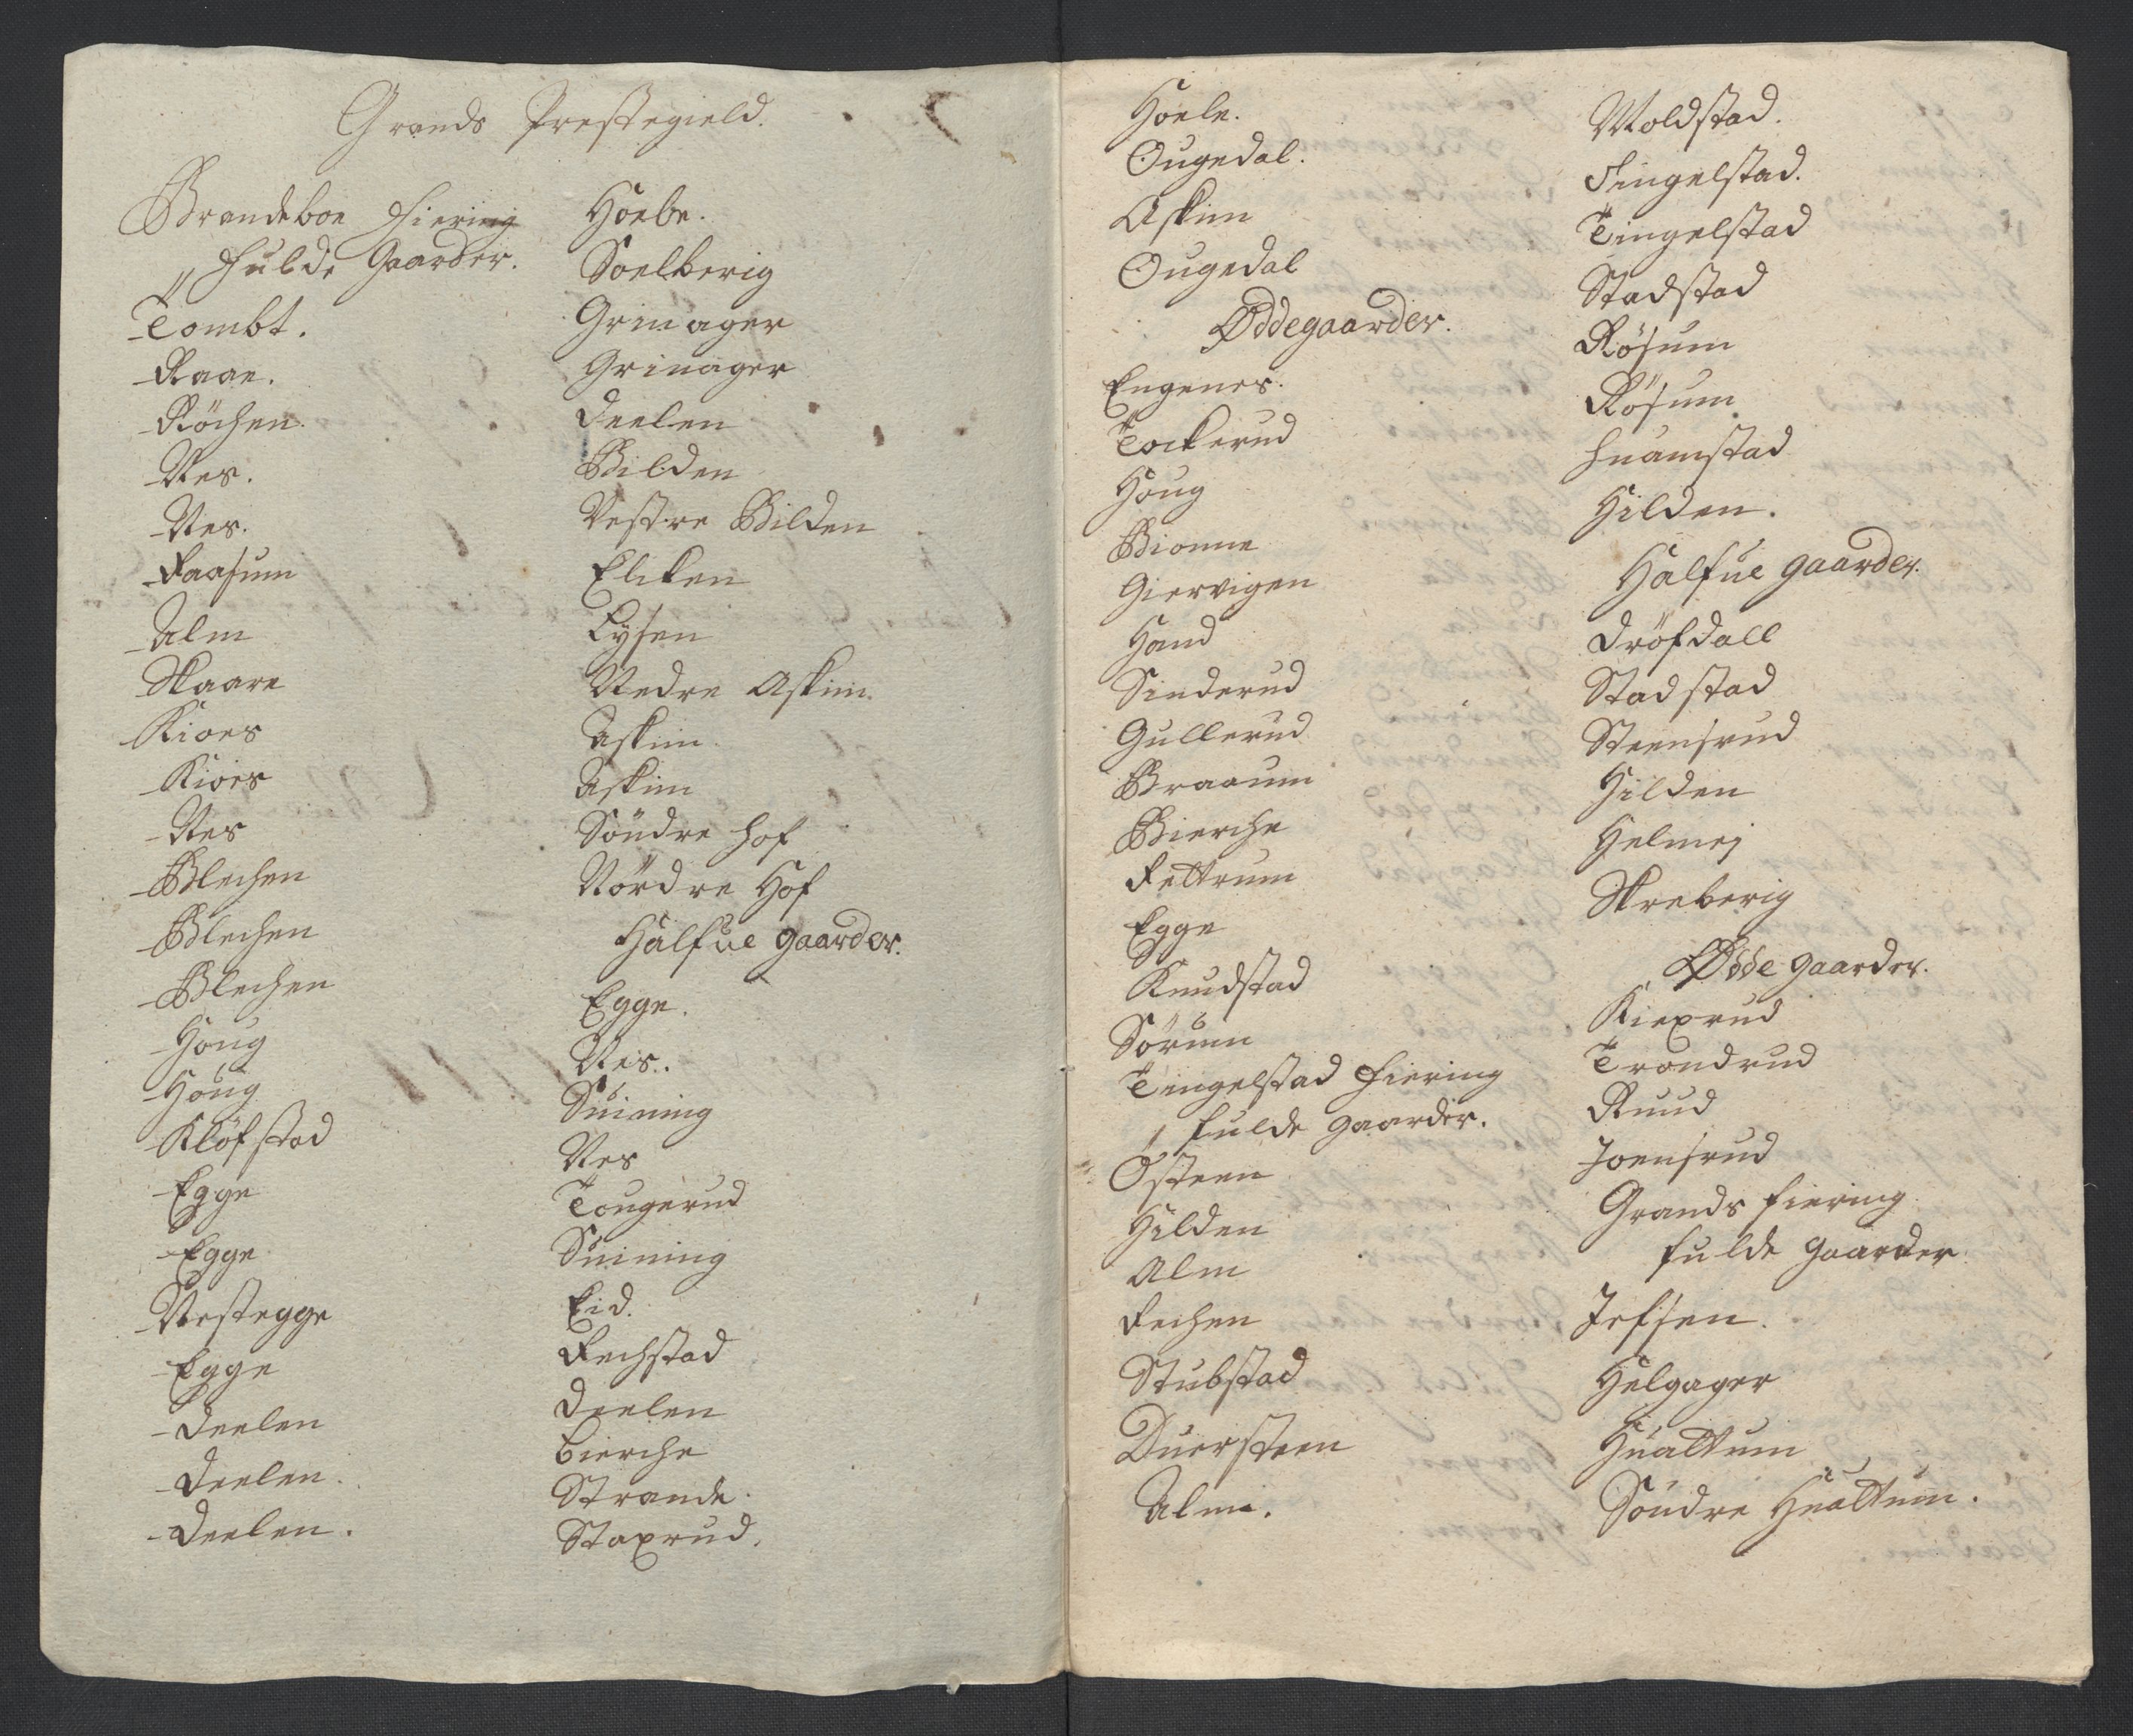 Grands Prestegield.
Brandeboe Fiering
Fulde Gaarder.
Tombt.
Raae.
Röchen.
Nes.
Nes.
Raasum
Alm
Skaare
Kioes
Kioes
Nes
Blechen
Blechen
Blechen
Houg
Houg
Klöfstad
Egge
Egge
Vestegge
Egge
Deelen
Deelen.
Deelen.
Hoebe.
Soelberig
Grinager
Grinager
Deelen
Bilden
Vestre Bilden
Elcken
Lysen
Nedre Askim
Askim
Askim
Söndre Hof
Nördre Hof
Halfue gaarder.
Egge.
Nes.
Suining
Nes
Tougerud
Suining
Eid.
Rechstad
Deelen
Bierche
Strande.
Staxrud.
Hoele.
Ougedal.
Askim
Ougedal
Øddegaarder.
Engenes.
Tockerud
Houg
Bionne
Giervigen
Hand
Sinderud
Gullerud
Braaum
Bierche
Rettrum
Egge
Knudstad
Sörum
Tingelstad Fiering
fulde gaarder.
Östeen
Hilden
Alm
Rechen
Stubstad
Duersteen
Alm.
Moldstad.
Fingelstad.
Tingelstad
Stadstad
Rösum
Rösum
Huamstad
Hilden.
Halfue gaarder.
Dröfdall
Stadstad
Steensrud
Hilden
Helmej
Skreberig
Ødde gaarder.
Kiexrud
Trondrud
Ruud
Joensrud
Grands fiering
fulde Gaarder
Jefsen.
Helgager
Huattum
Söndre Huattum.